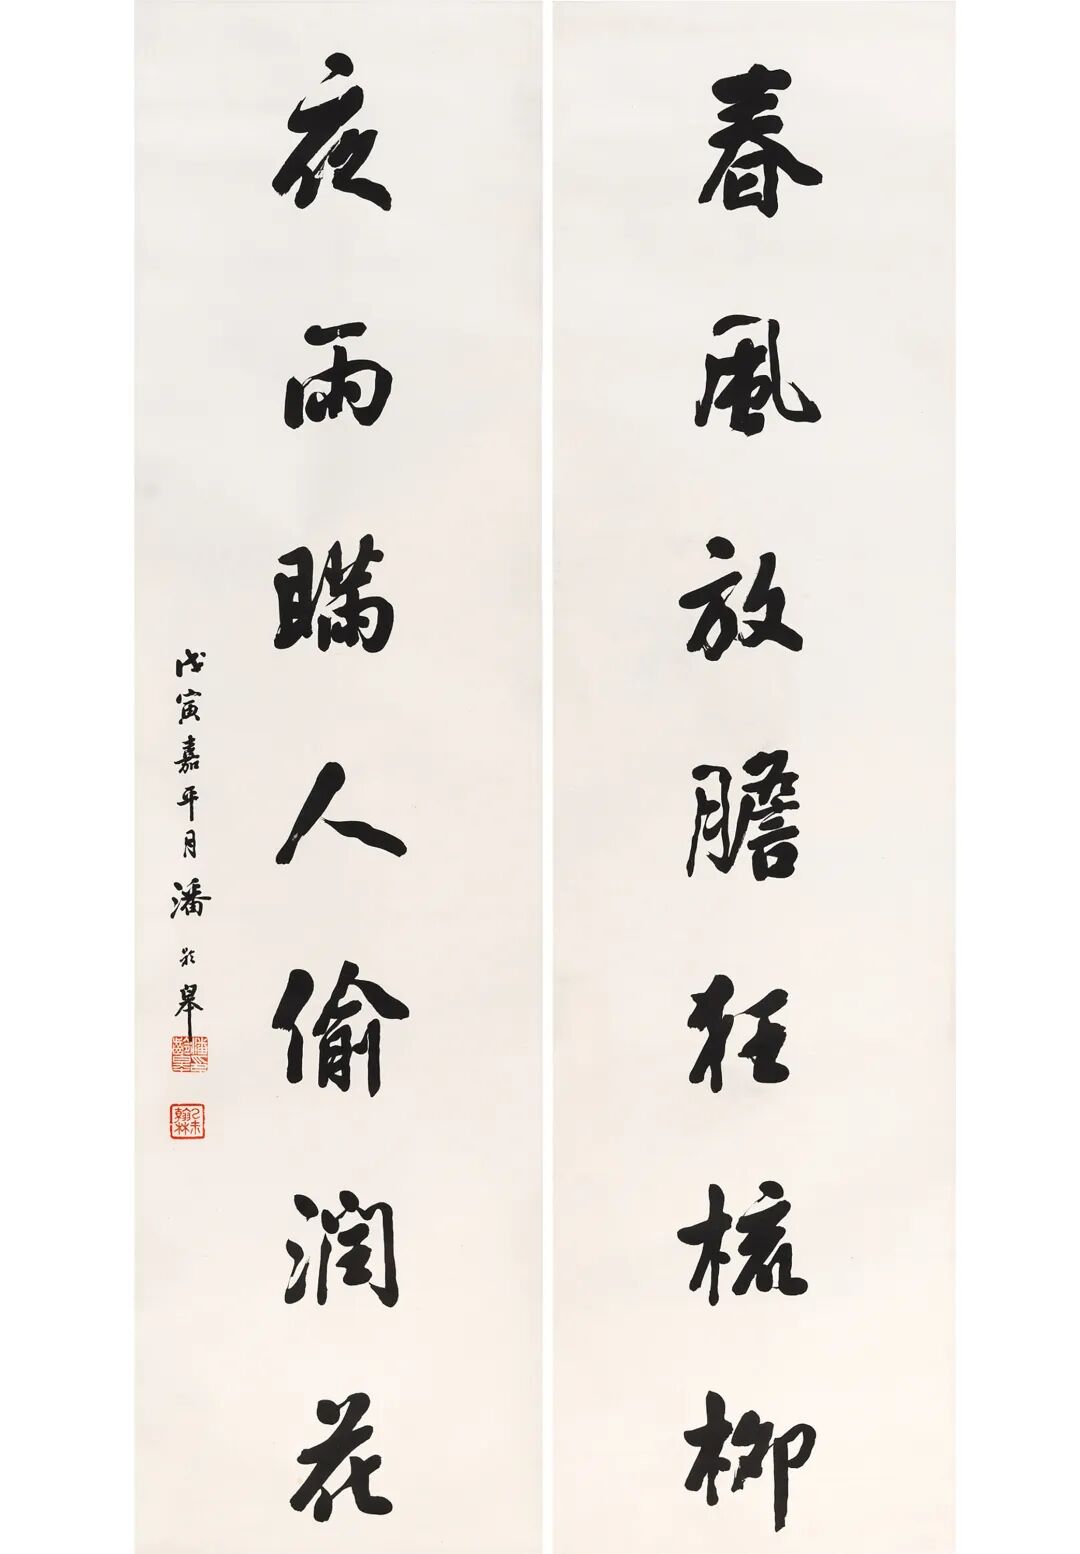 春風放膽狂梳柳
夜雨瞞人偷潤花
戊寅嘉平月潘齡皋
翰林